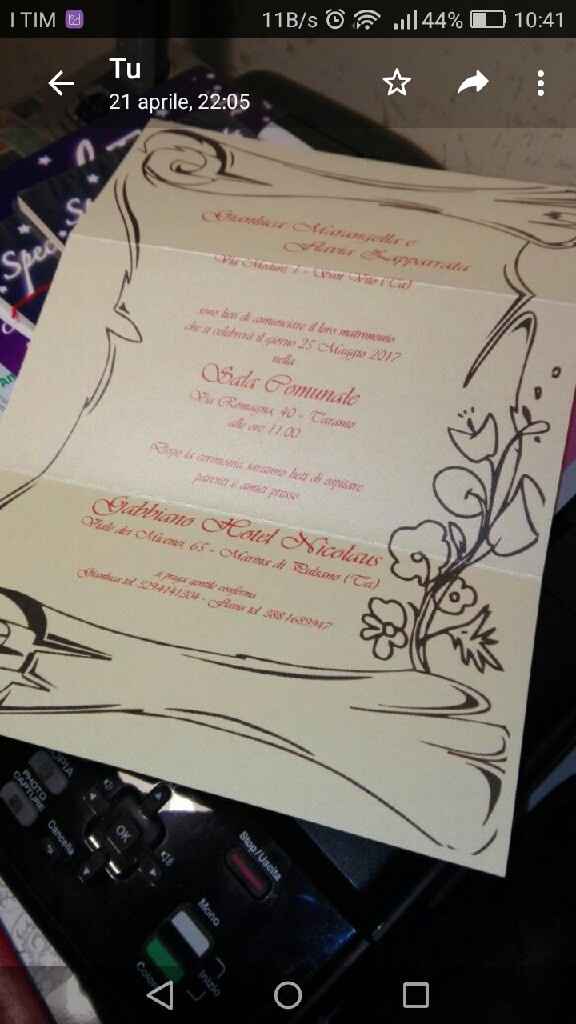 I TIM
11B/s
44%
10:41
Tu
21 aprile, 22:05
Spec
Gianluca Marangella e
Flavia Zapparrata
Via 1 - San Vito (Ta)
sono lieti di comunicare il loro matrimonio
che si celebrerà il giorno 25 Maggio 2017
nella
Sala Comunale
Via Romagna, 40 - Taranto
alle ore 11.00
Dopo la cerimonia saranno lieti di ospitare
parenti e amici presso
Gabbiano Hotel Nicolaus
Viale dei Micenei, 65 - Marina di Pulsano (Ta)
si prega gentile conferma
Gianluca tel. - Flavia tel.
PHOTO
CAPTURE
OK
Cancella
Stop/Uscita
Mono
Colore
Inizio